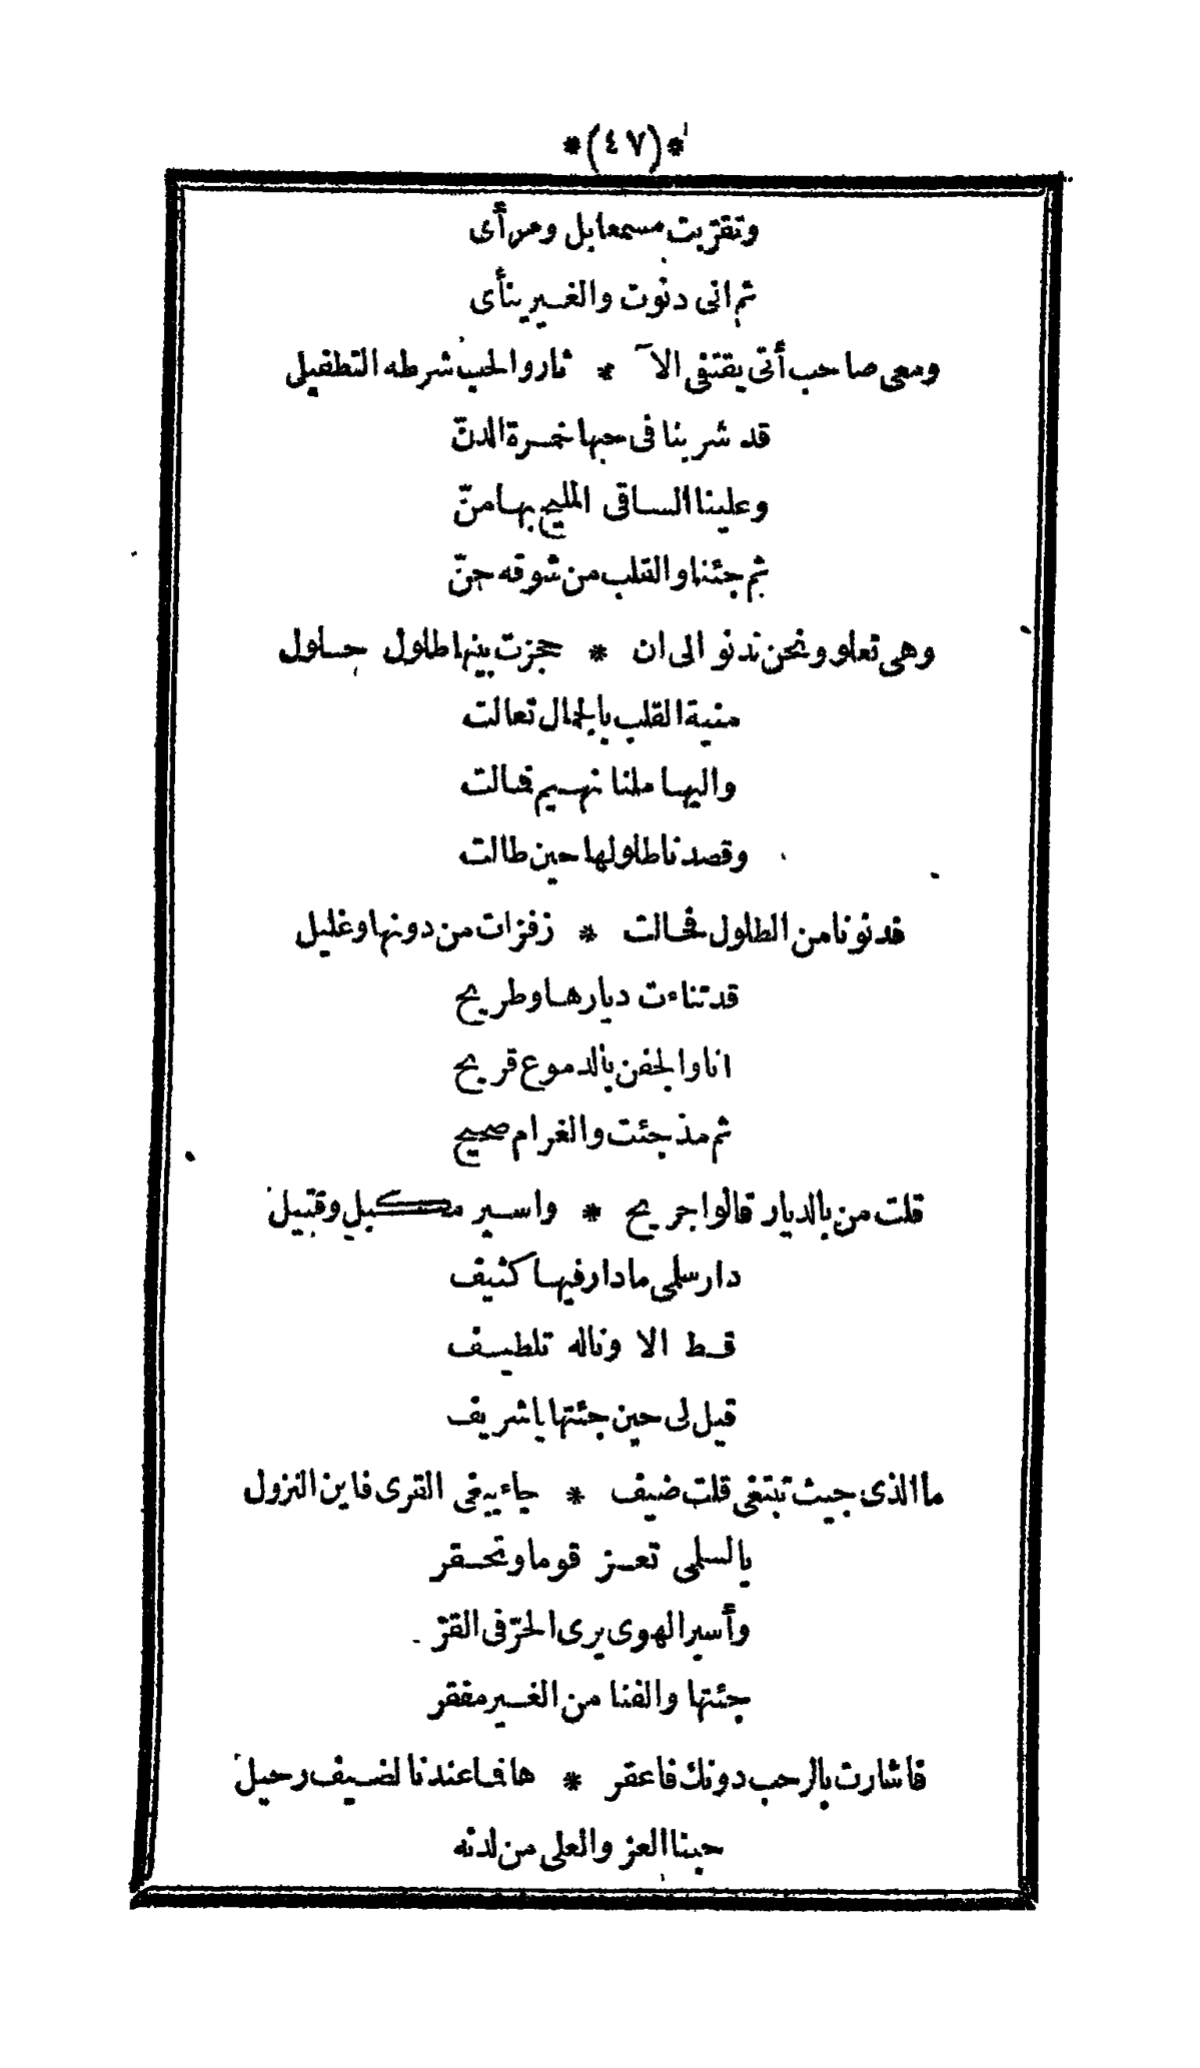 *(٤٧)*
وتقرّبت مسمعا بل ومرأى
ثم انى دنوت والغير ينأى
ومعى صاحب أتى يقتفى الآ * ثار والحب شرطه التطفيل
قد شربنا فى حبها خمرة الدنّ
وعلينا الساقى المليح بها منّ
ثم جئنا والقلب من شوقه حنّ
وهى تعلو ونحن ندنو الى ان * حجزت بينها طلول حساول
منية القلب بالجمال تعالت
واليها ملنا نهيم فمالت
وقصدنا طلولها حين طالت
فدنونا من الطلول فحالت * زفرات من دونها وغليل
قد تناءت ديارها وطريح
انا والجفن بالدموع قريح
ثم مذ جئت والغرام صحيح
قلت من بالديار قالوا جريح * واسير مكبل وقتيل
دار سلمى ما دار فيها كثيف
قط الا وناله تلطيف
قيل لى حين جئتها يا شريف
ما الذى جيث تبتغى قلت ضيف * جاء يبغى القرى فاين النزول
يا لسلمى تعز قوما وتحقر
وأسير الهوى يرى الحرّ فى القرّ
جئتها والفنا من الغير مفقر
فاشارت بالرحب دونك فاعقر * ها فما عندنا لضيف رحيل
حبنا العز والعلى من لدنه